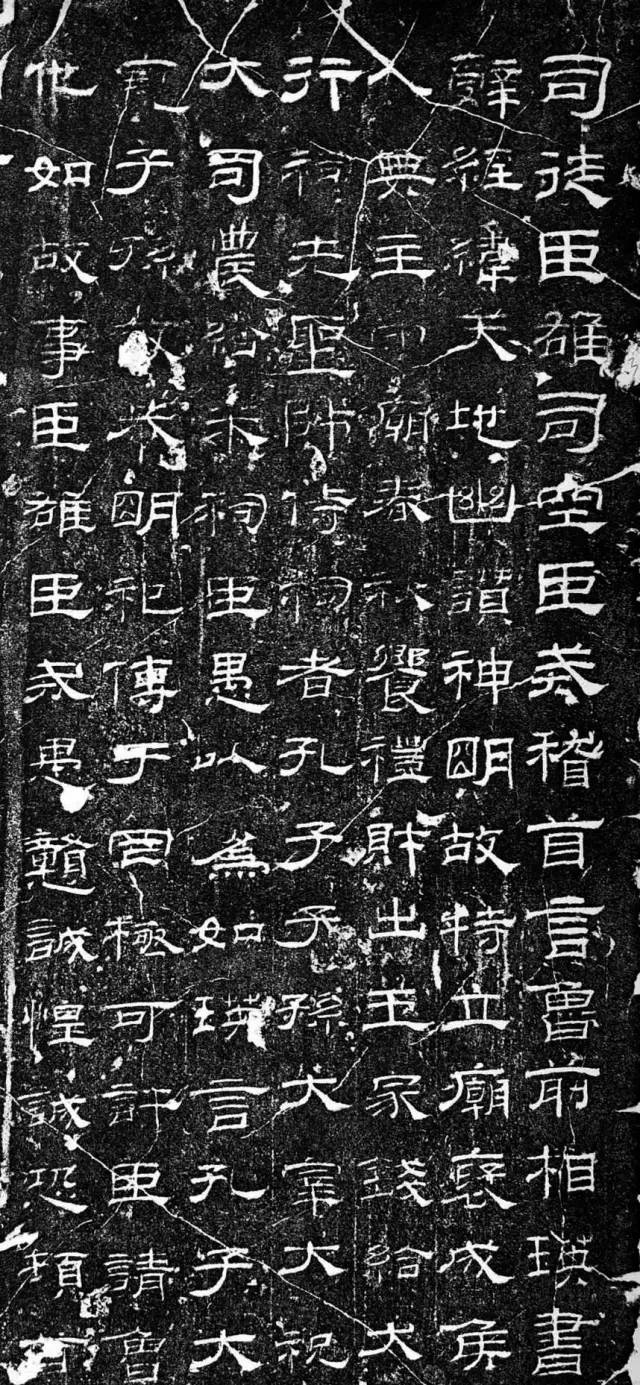 司徒臣雄司空臣戒稽首言魯前相瑛書
辭經緯天地幽讚神明故特立廟褒成侯
人典主守廟春秋饗禮財出王家錢給犬
行祠先聖師侍祠者孔子子孫大宰大祝
大司農給米祠臣愚以爲如瑛言孔子大
寵子孫敬恭明祀傳于罔極可許臣請魯
他如故事臣雄臣戒愚戇誠惶誠恐頓首